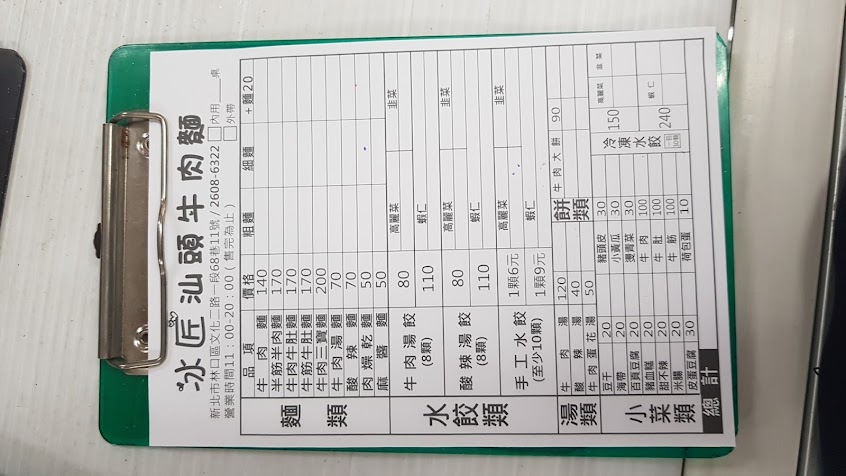 冰匠汕頭牛肉麵
新北市林口區文化二路一段68巷11號 / 2608-6322 □內用___桌
營業時間11:00-20:00 (售完為止) □外帶
品項 價格 粗麵 細麵 +麵20
麵類
牛肉麵 140
半筋半肉麵 170
牛肉牛肚麵 170
牛筋牛肚麵 170
牛肉三寶麵 200
牛肉湯麵 70
酸辣麵 70
肉燥乾麵 50
麻醬麵 50
水餃類
牛肉湯餃 (8顆) 80 高麗菜 韭菜
110 蝦仁
酸辣湯餃 (8顆) 80 高麗菜 韭菜
110 蝦仁
手工水餃 (至少10顆) 1顆6元 高麗菜 韭菜
1顆9元 蝦仁
湯類
牛肉湯 120
酸辣湯 40
牛肉蛋花湯 50
餅類
牛肉大餅 90
小菜類
豆干 20 豬頭皮 30
海帶 20 小黃瓜 30
百頁豆腐 20 燙青菜 30
豬血糕 20 牛肉 100
甜不辣 20 牛肚 100
米腸 20 牛筋 100
皮蛋豆腐 30 荷包蛋 10
冷凍水餃
150 高麗菜 韭菜
240 蝦仁
總計